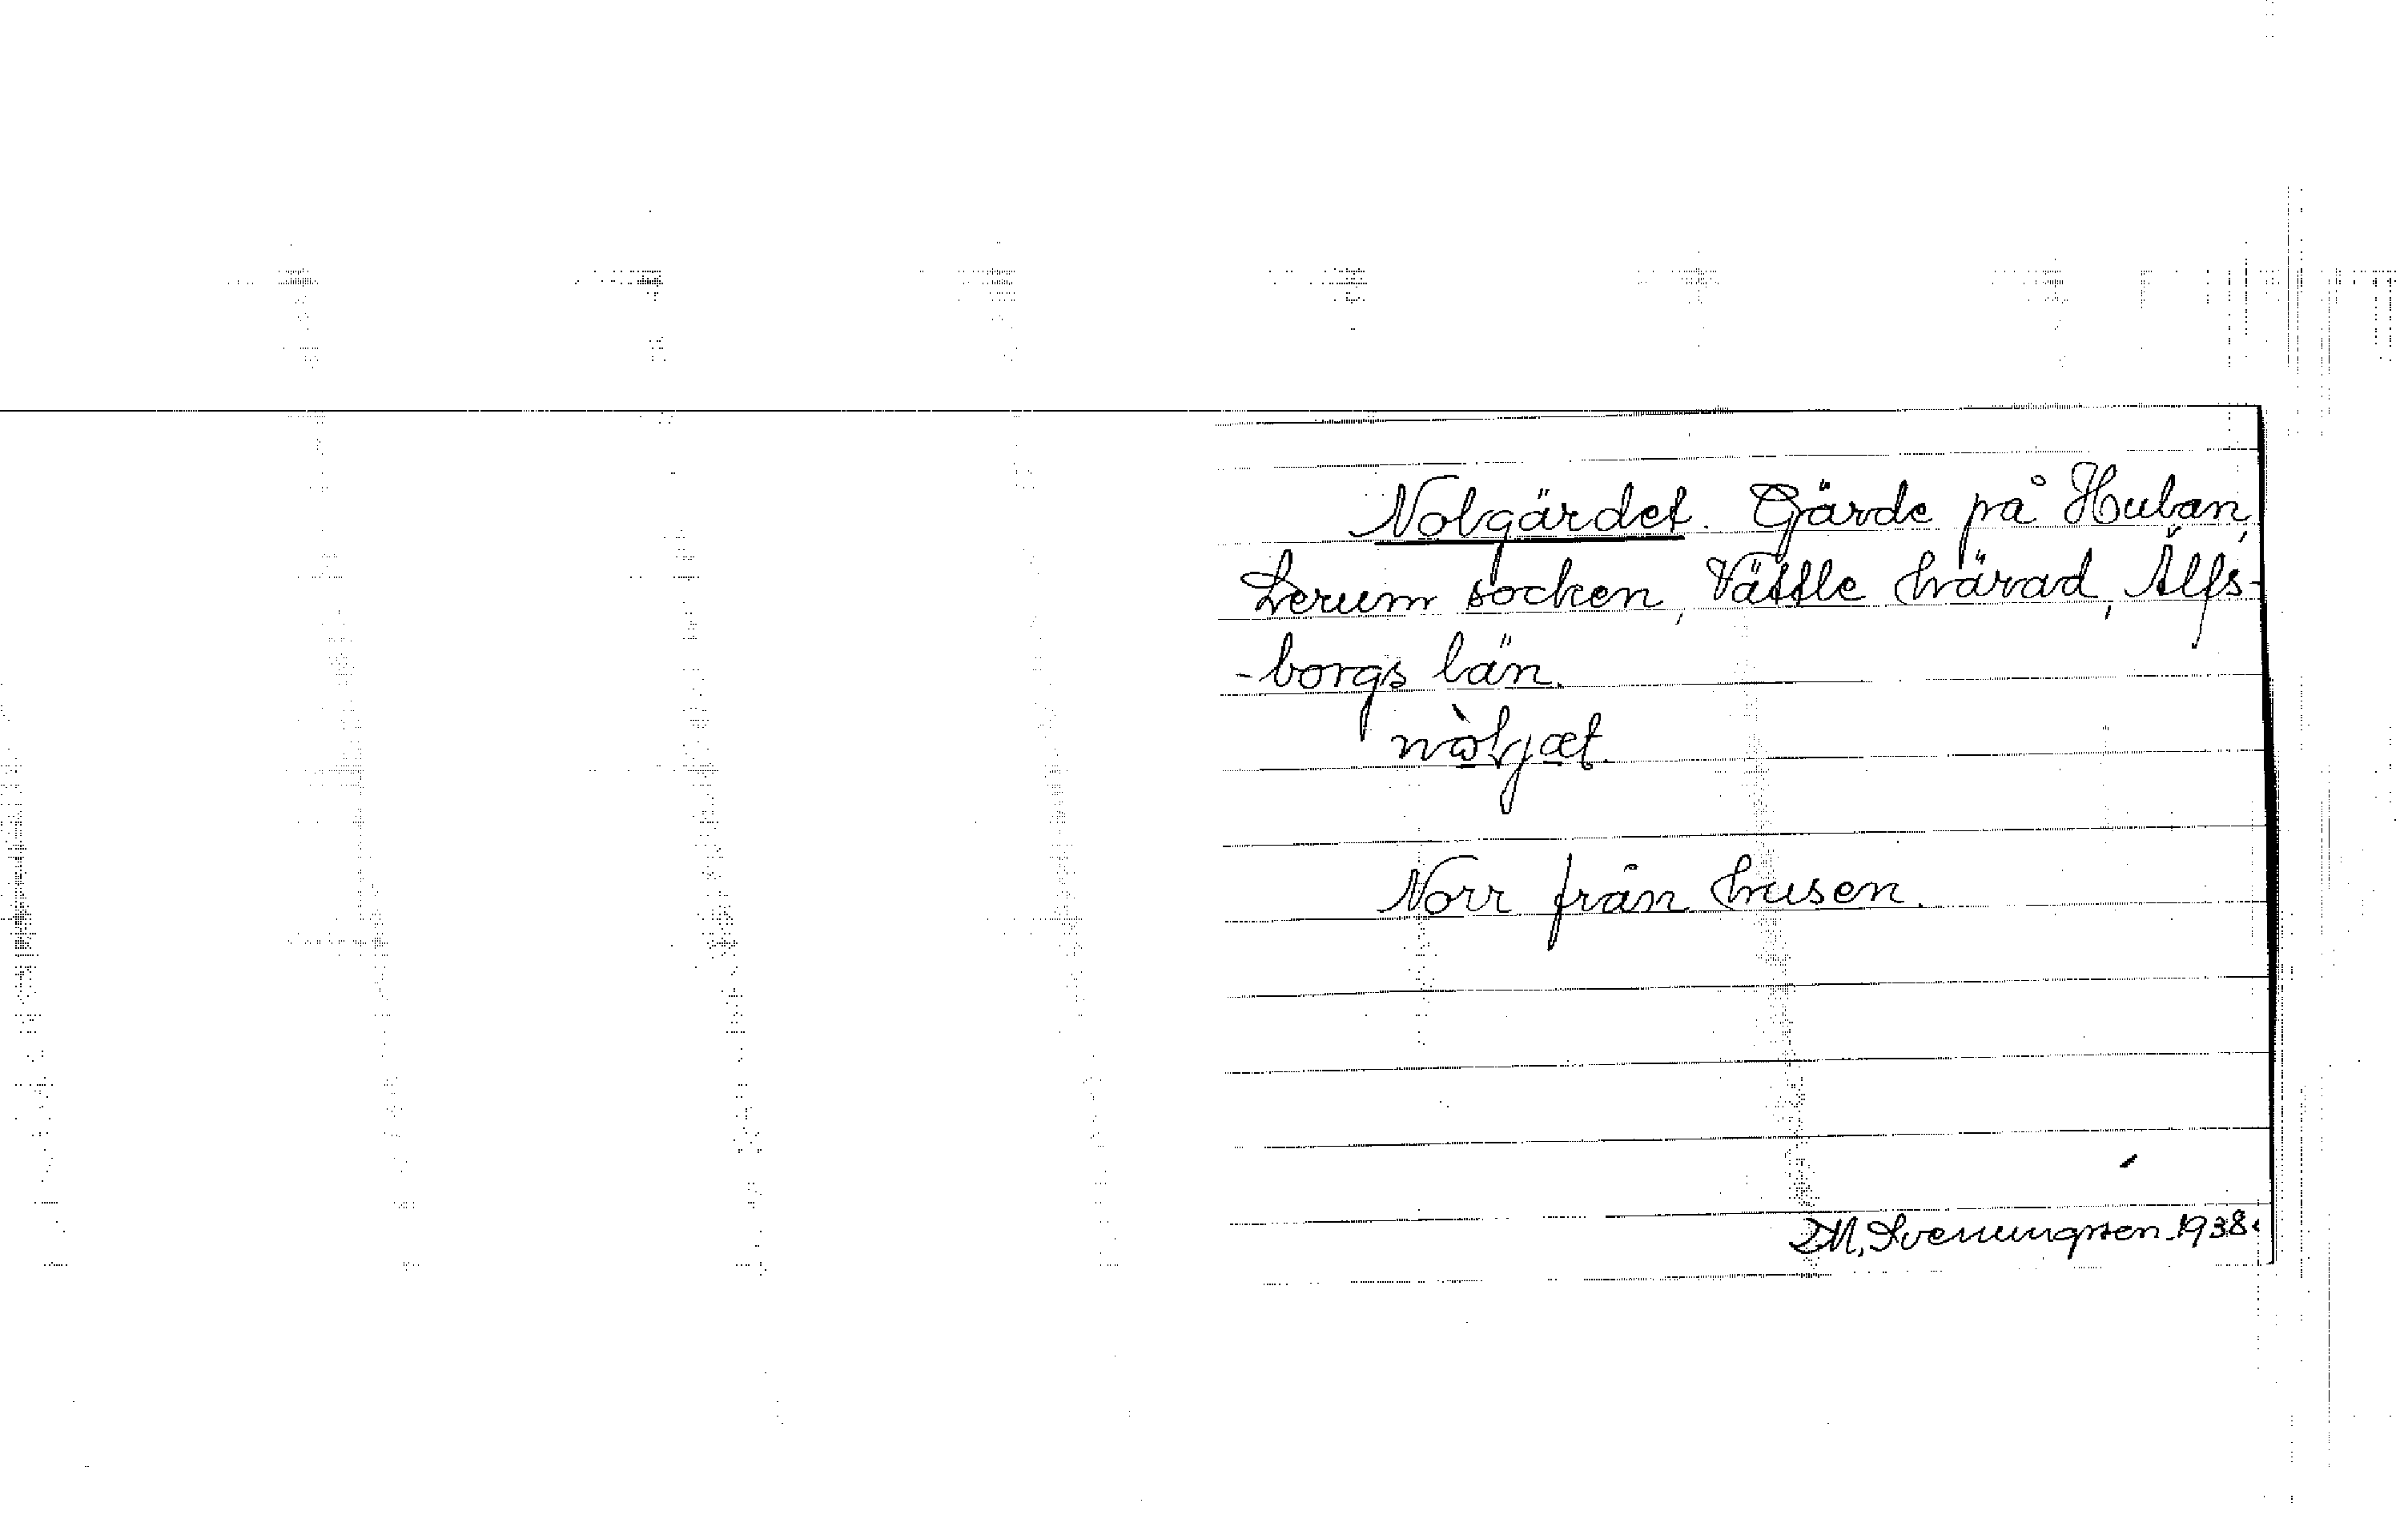 Nolgärdet. Gärde på Hulan,
Lerum socken, Vättle härad, Älfs-
-borgs län.
nòljæt.
Norr från husen.
D.M. Svenungsson 1938.